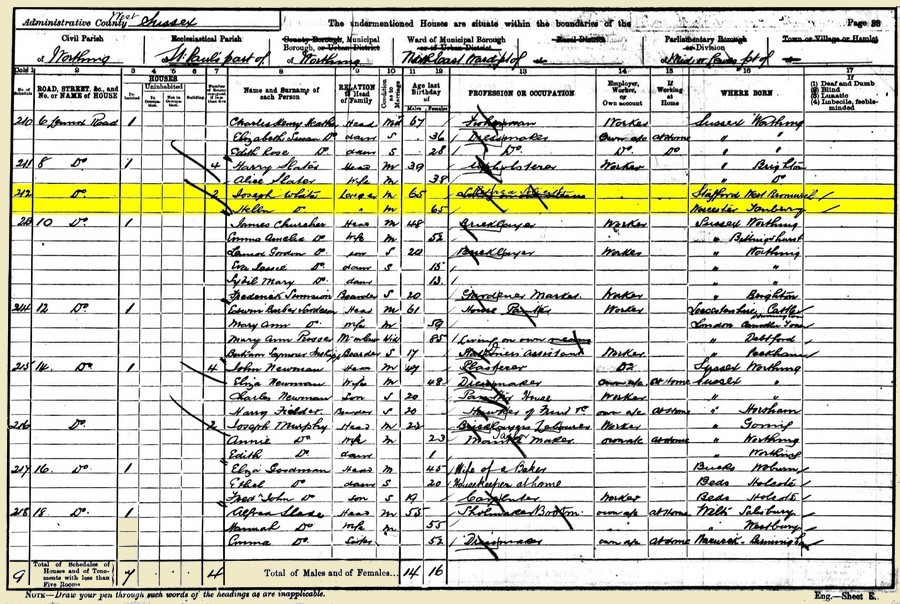 Administrative County West Sussex The undermentioned Houses are situate within the boundaries of the Page 38
Civil Parish Ecclesiastical Parish County Borough, Municipal Borough, or Urban District Ward of Municipal Borough or of Urban District Rural District Parliamentary Borough or Division Town or Village or Hamlet
of Worthing of St. Pauls part of of Worthing of North East Ward pt of of of
Cols 1 2 3 4 5 6 7 8 9 10 11 12 13 14 15 16 17
No. of Schedule ROAD, STREET, &c., and No. or NAME of HOUSE HOUSES Inhabited Uninhabited Building Name and Surname of each Person RELATION to Head of Family Condition as to Marriage Age last Birthday of Males Females PROFESSION OR OCCUPATION Employer, Worker, or Own account If Working at Home WHERE BORN (1) Deaf and Dumb (2) Blind (3) Lunatic (4) Imbecile, feeble-minded
210 6 Road 1 Charles Henry Head Wid 67 Fisherman Worker Sussex Worthing
Elizabeth Susan Do. daur S 36 Dressmaker own a/c At home " "
Edith Rose Do. daur S 28 Do. Do Do " "
211 8 Do 1 4 Harry Slater Head M 39 Upholsterer Worker " Brighton
Alice Slater Wife M 38 " Do
212 Do 2 Joseph White Lodger M 65 Stafford West Bromwich
Do. " M 65 Worcester Tenbury
213 10 Do 1 James Churcher Head M 48 Bricklayer Worker Sussex Worthing
Emma Amelia Do. Wife M 52 " Billingshurst
Gordon Do. son S 20 Bricklayer Worker " Worthing
Eva Jessie Do. daur S 15 " "
Sybil Mary Do. daur 13 " "
Frederick Boarder S 20 Gardener Market Worker " Brighton
214 12 Do 1 Edwin Head M 61 House Worker Leicestershire Castle
Mary Ann Do. Wife M 59 London Camden Town
Mary Ann Wid 85 Living on own means " Deptford
Bertram Seymour Boarder S 17 Assistant Worker " Peckham
215 14 Do 1 4 John Newman Head M 47 Plasterer Do Sussex Worthing
Eliza Newman Wife M 48 Dressmaker own a/c At Home Sussex "
Charles Newman Son S 20 Painter House Worker " "
Harry Fielder Boarder S 20 Hawker of Fruit &c own a/c At home " Horsham
216 Do 2 Joseph Murphy Head M 22 Bricklayers Labourer Worker " Goring
Annie Do Wife M 23 Maker own a/c At home " Worthing
Edith Do daur 1 " Worthing
217 16 Do 1 Eliza Goodman Head M 45 Wife of a Baker Bucks Woburn
Ethel Do daur S 20 Housekeeper at home Beds Holcot
Fred John Do son S 19 Carpenter Worker Beds Holcot
218 18 Do 1 Alfred Head M 55 own a/c At home Wilts Salisbury
Hannah Do Wife M 55 " Westbury
Emma Do. Sister 52 Dressmaker own a/c At home Warwick Birmingham
9 Total of Schedules of Houses and of Tenements with less than Five Rooms 7 4 Total of Males and of Females... 14 16
NOTE—Draw your pen through such words of the headings as are inapplicable. Eng.—Sheet E.